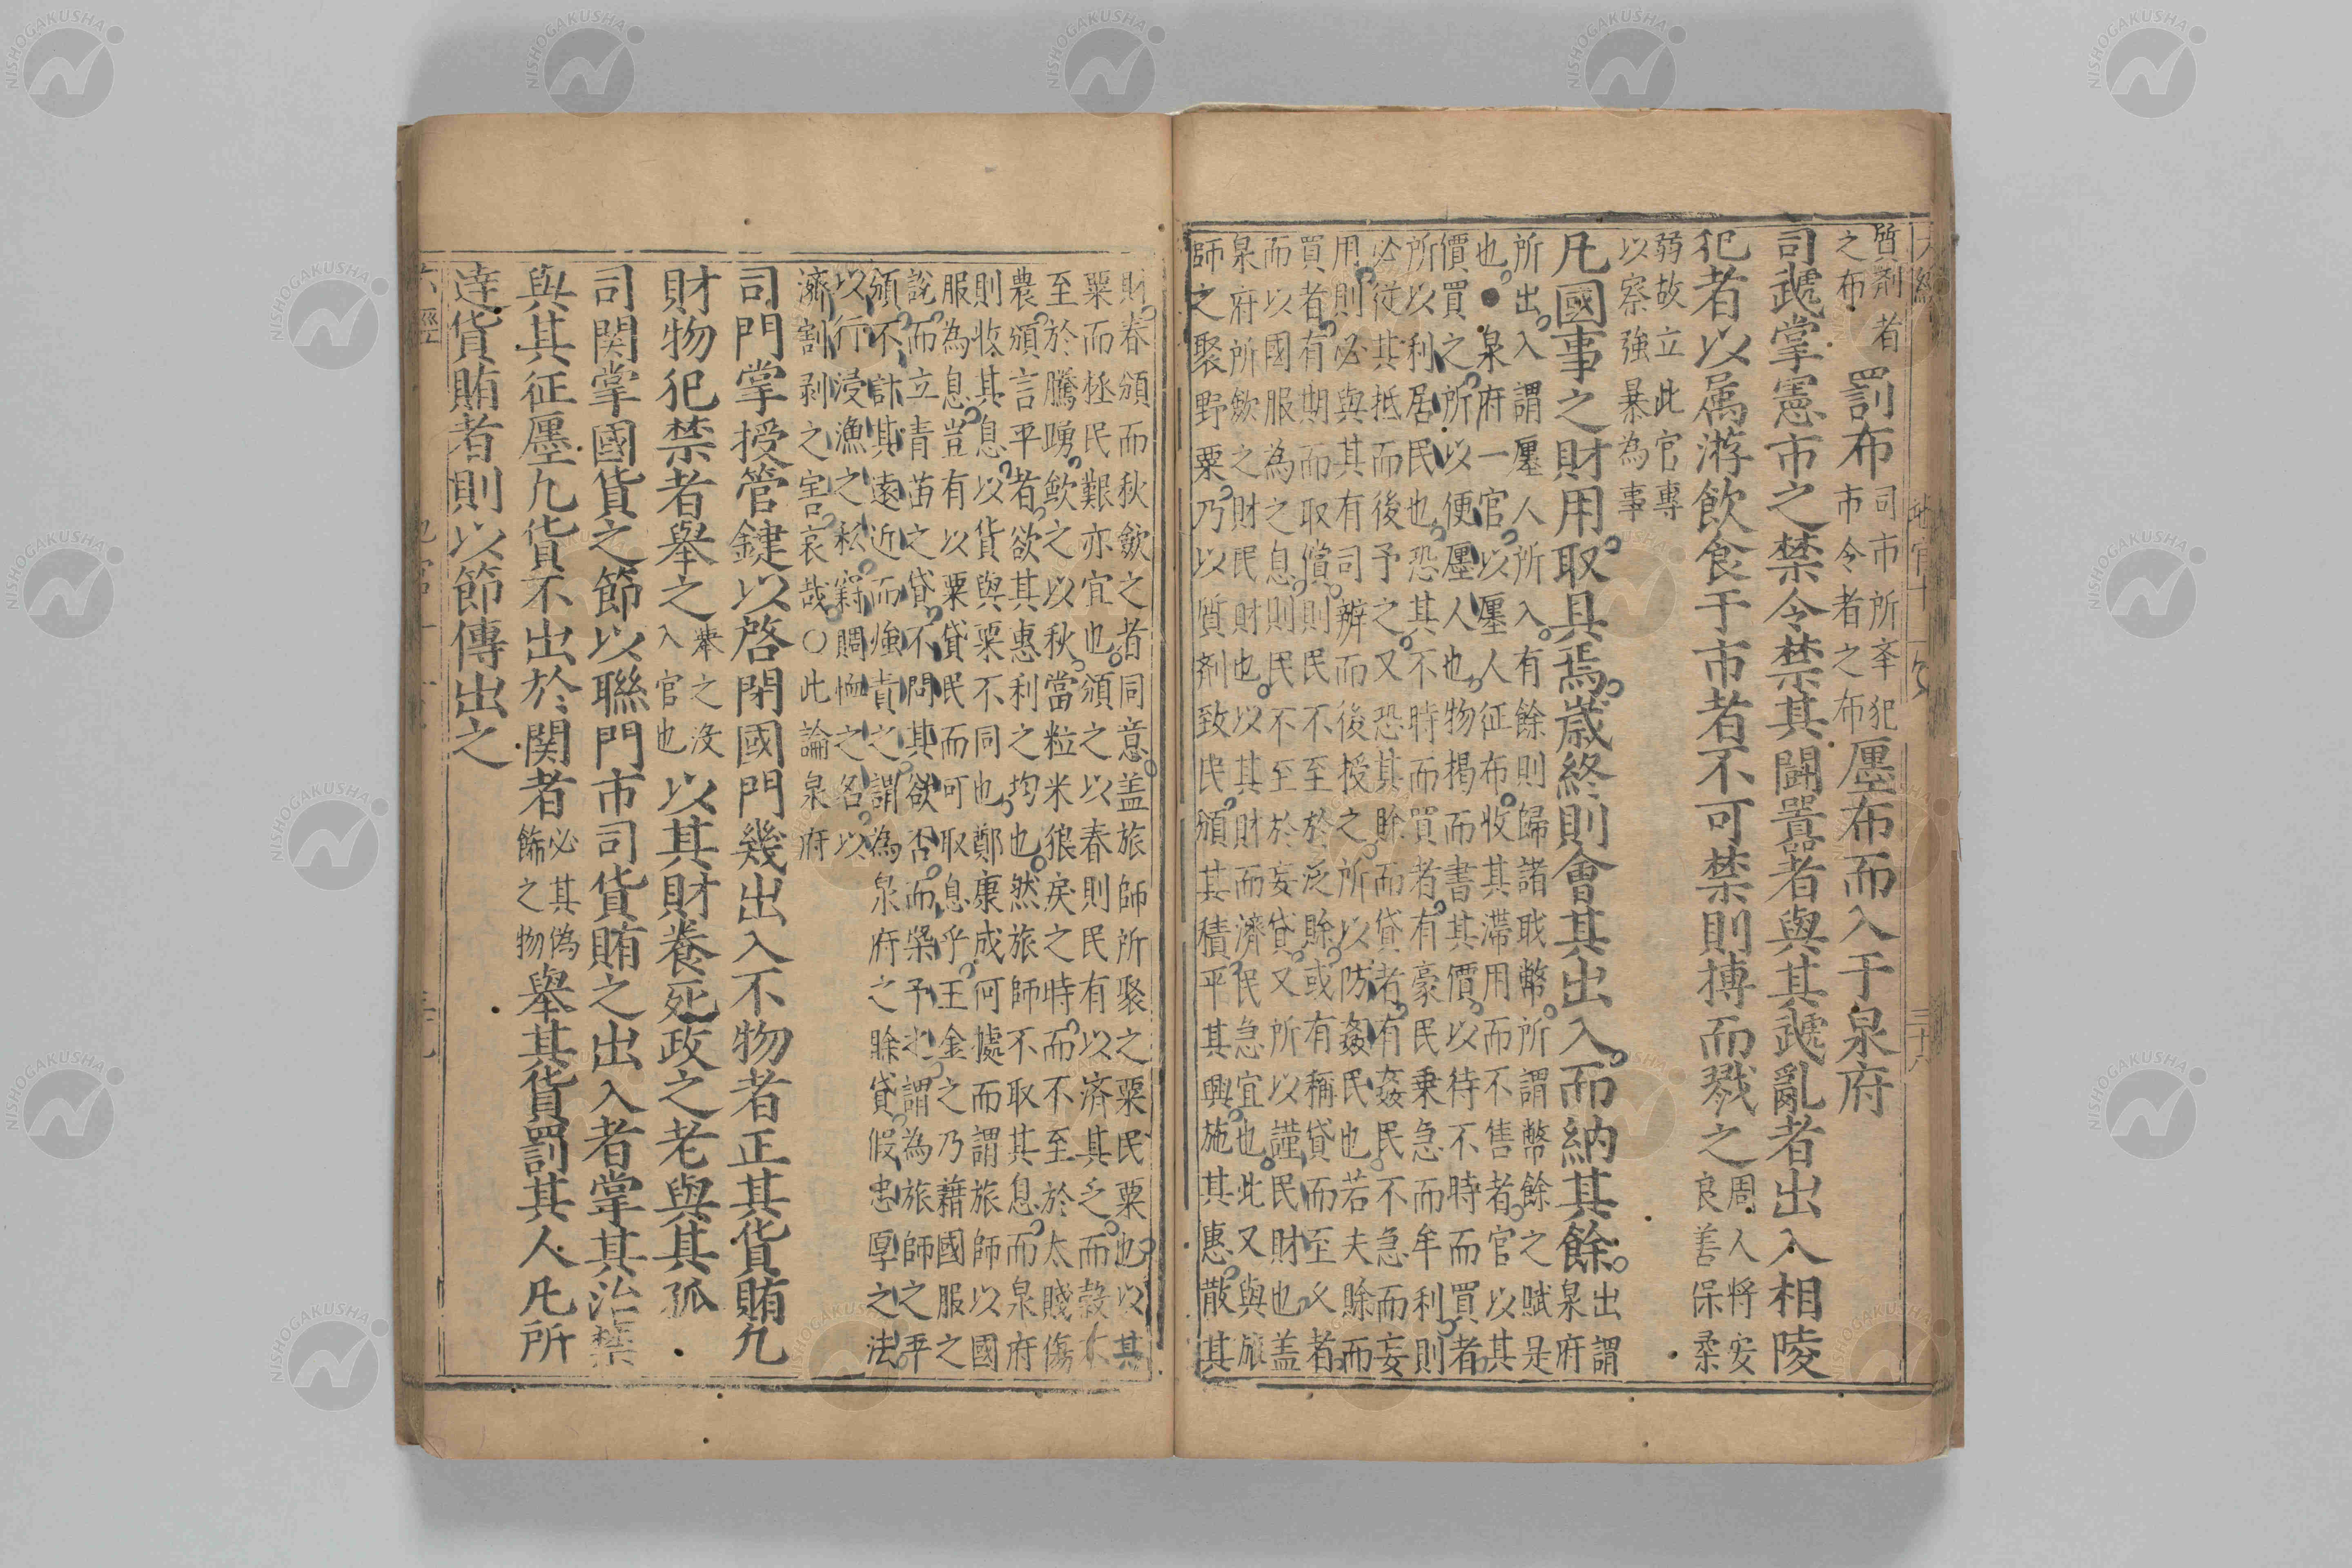 質劑者
之布
罰布
司市所奉犯
市令者之布
廛布而入于泉府
司虣掌憲市之禁令禁其鬪囂者與其虣亂者出入相陵
犯者以属游飲食于市者不可禁則搏而戮之
周人將安
良善保柔
弱故立此官專
以察強暴為事
凡國事之財用取具焉歲終則會其出入而納其餘
出謂
泉府
所出入謂廛人所入有餘則歸諸職幣所謂幣餘之賦是
也●泉府一官以廛人征布收其滯用而不售者官以其
價買之所以便廛人也物揭而書其價以待不時而買者
所以利居民也恐其不時而買者有豪民乗急而牟利則
必從其抵而後予之又恐其賖而貸者有姦民不急而妄
用則必與其有司辨而後授之所以防姦民也若夫賖而
買者有期而取償則民不至於泛賖或有稱貸而至者
而以國服為之息則民不至於妄貸又所以謹民財也盖
泉府所歛之財民財也以其財而濟民急宜也此又與旅
師之聚野粟乃以質劑致民頒其積平其興施其惠散其
財春頒而秋歛之者同意盖旅師所聚之粟民粟也以其
粟而拯民艱亦宜也頒之以春則民有以済其乏而穀
至於騰踴歛之以秋當粒米狼戾之時而不至於太賤傷
農頒言平者欲其惠利之均也然旅師不取其息而泉府
則收其息以貨與粟不同也鄭康成何據而謂旅師以國
服為息豈有以粟貸民而可取息乎王金之乃藉國服之
說而立青苗之貸不問其欲否而槩予之謂為旅師之平
頒不計其遠近而強責之謂為泉府之賖貸假忠厚之法
以行浸漁之私竊賙恤之名以
濟割剥之害哀哉〇此論泉府
司門掌授管鍵以啓閉國門幾出入不物者正其貨賄凢
財物犯禁者舉之
舉之没
入官也
以其財養死政之老與其孤
司関掌國貨之節以聯門市司貨賄之出入者掌其治禁
與其征廛凢貨不出於関者
必其偽
飾之物
舉其貨罰其人凡所
達貨賄者則以節傳出之